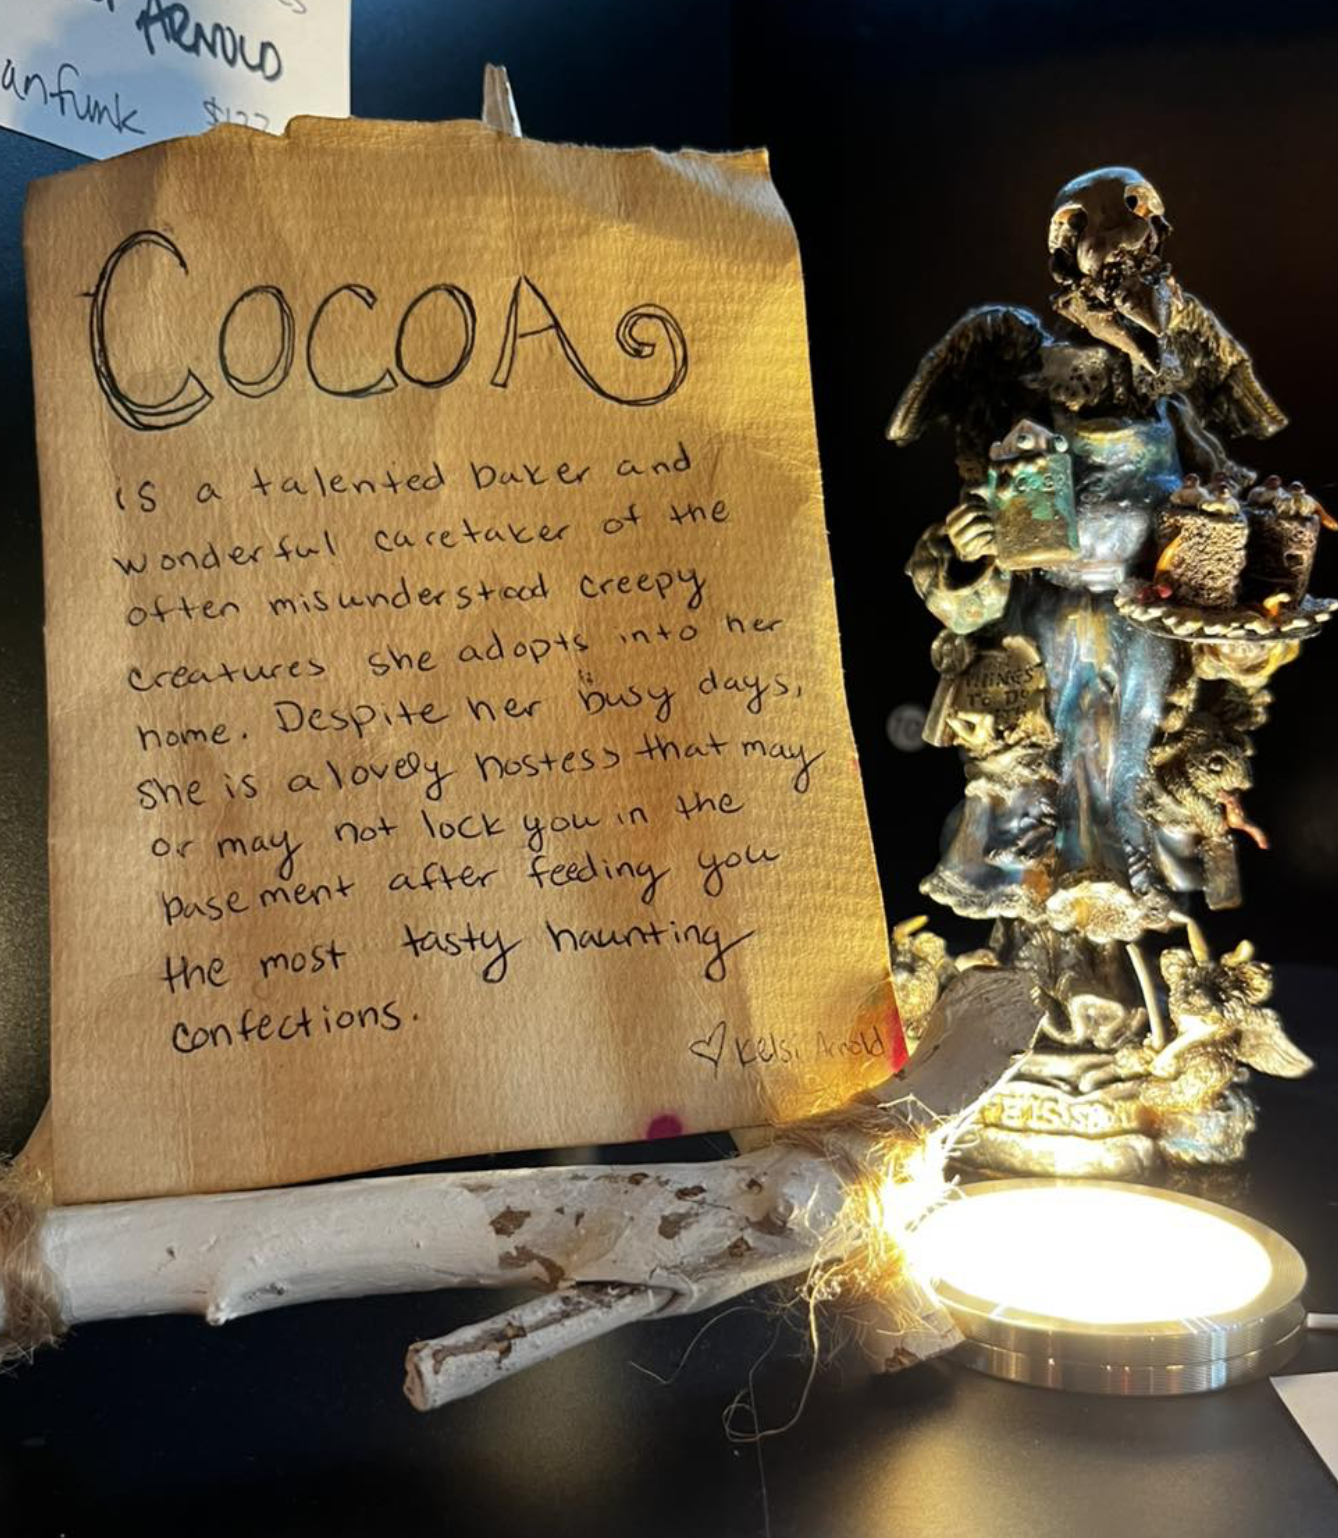 ARNOLD
anfunk
COCOA
is a talented baker and
wonderful caretaker of the
often misunderstood creepy
creatures she adopts into her
home. Despite her busy days,
she is a lovely hostess that may
or may not lock you in the
basement after feeding you
the most tasty haunting
confections.
♡ Kelsi Arnold
THINGS
TO DO